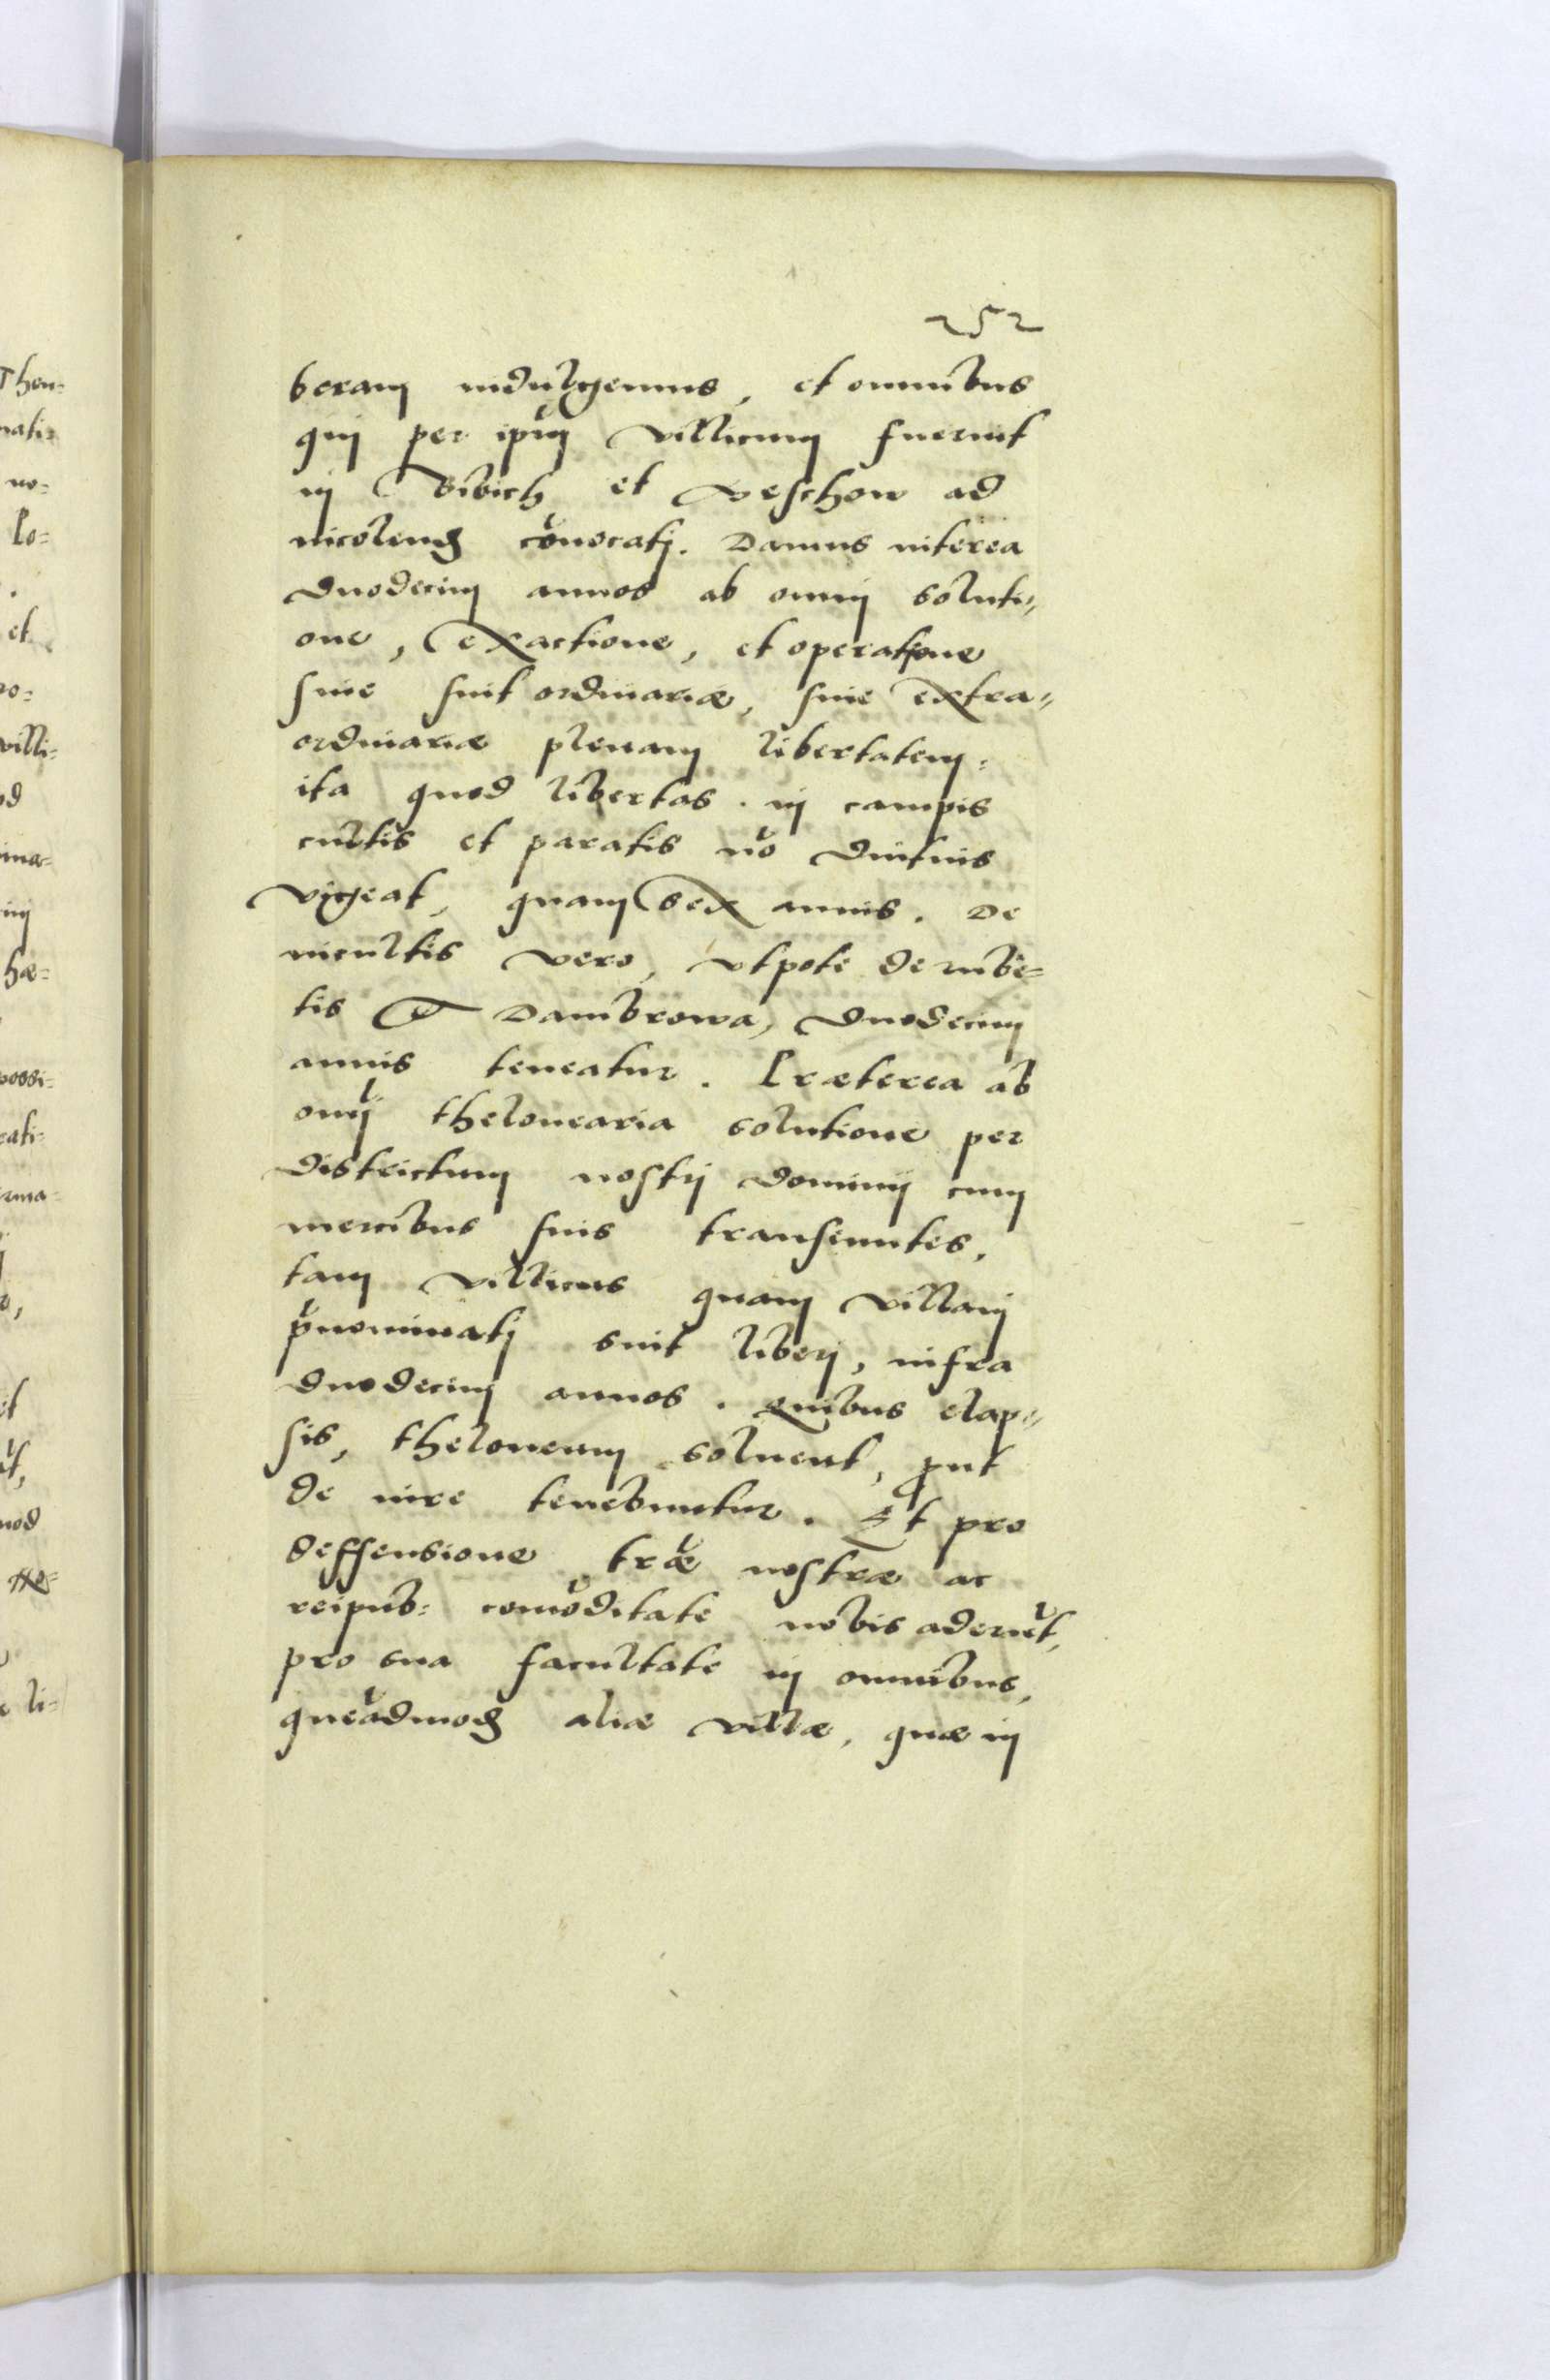 252
beram indulgemus, et omnibus
qui per ipũm villicum fuerint
in Bibich et Veschow ad
incolend cõuocati. Damus interea
duodecim annos ab omni soluti=
one, exactione, et operatione
siue sint ordinariæ, siue extra=
ordinariæ plenam libertatem:
ita quod libertas. in campis
cultis et paratis nõ diutius
vigeat, quam sex annis. De
incultis vero, vtpote de rube=
tis et Dambrowa, duodecim
annis teneatur. Præterea ab
om̃i thelonearia solutione per
districtum nostri dominij cum
mercibus suis transeuntes,
tam villicus quam villani
p̃nominati sint liberi, infra
duodecim annos. quibus elap=
sis, theloneum soluent, ꝓut
de iure tenebuntur. Et pro
deffensione træ̃ nostræ ac
reipub: com̃oditate nobis aderũt,
pro sua facultate in omnibus,
quẽadmod aliæ villæ, quæ in
Then=
natis
no=
lo=
et
villi=
od
ima=
hæ=
possi=
cati=
irma=
et
nod
li=